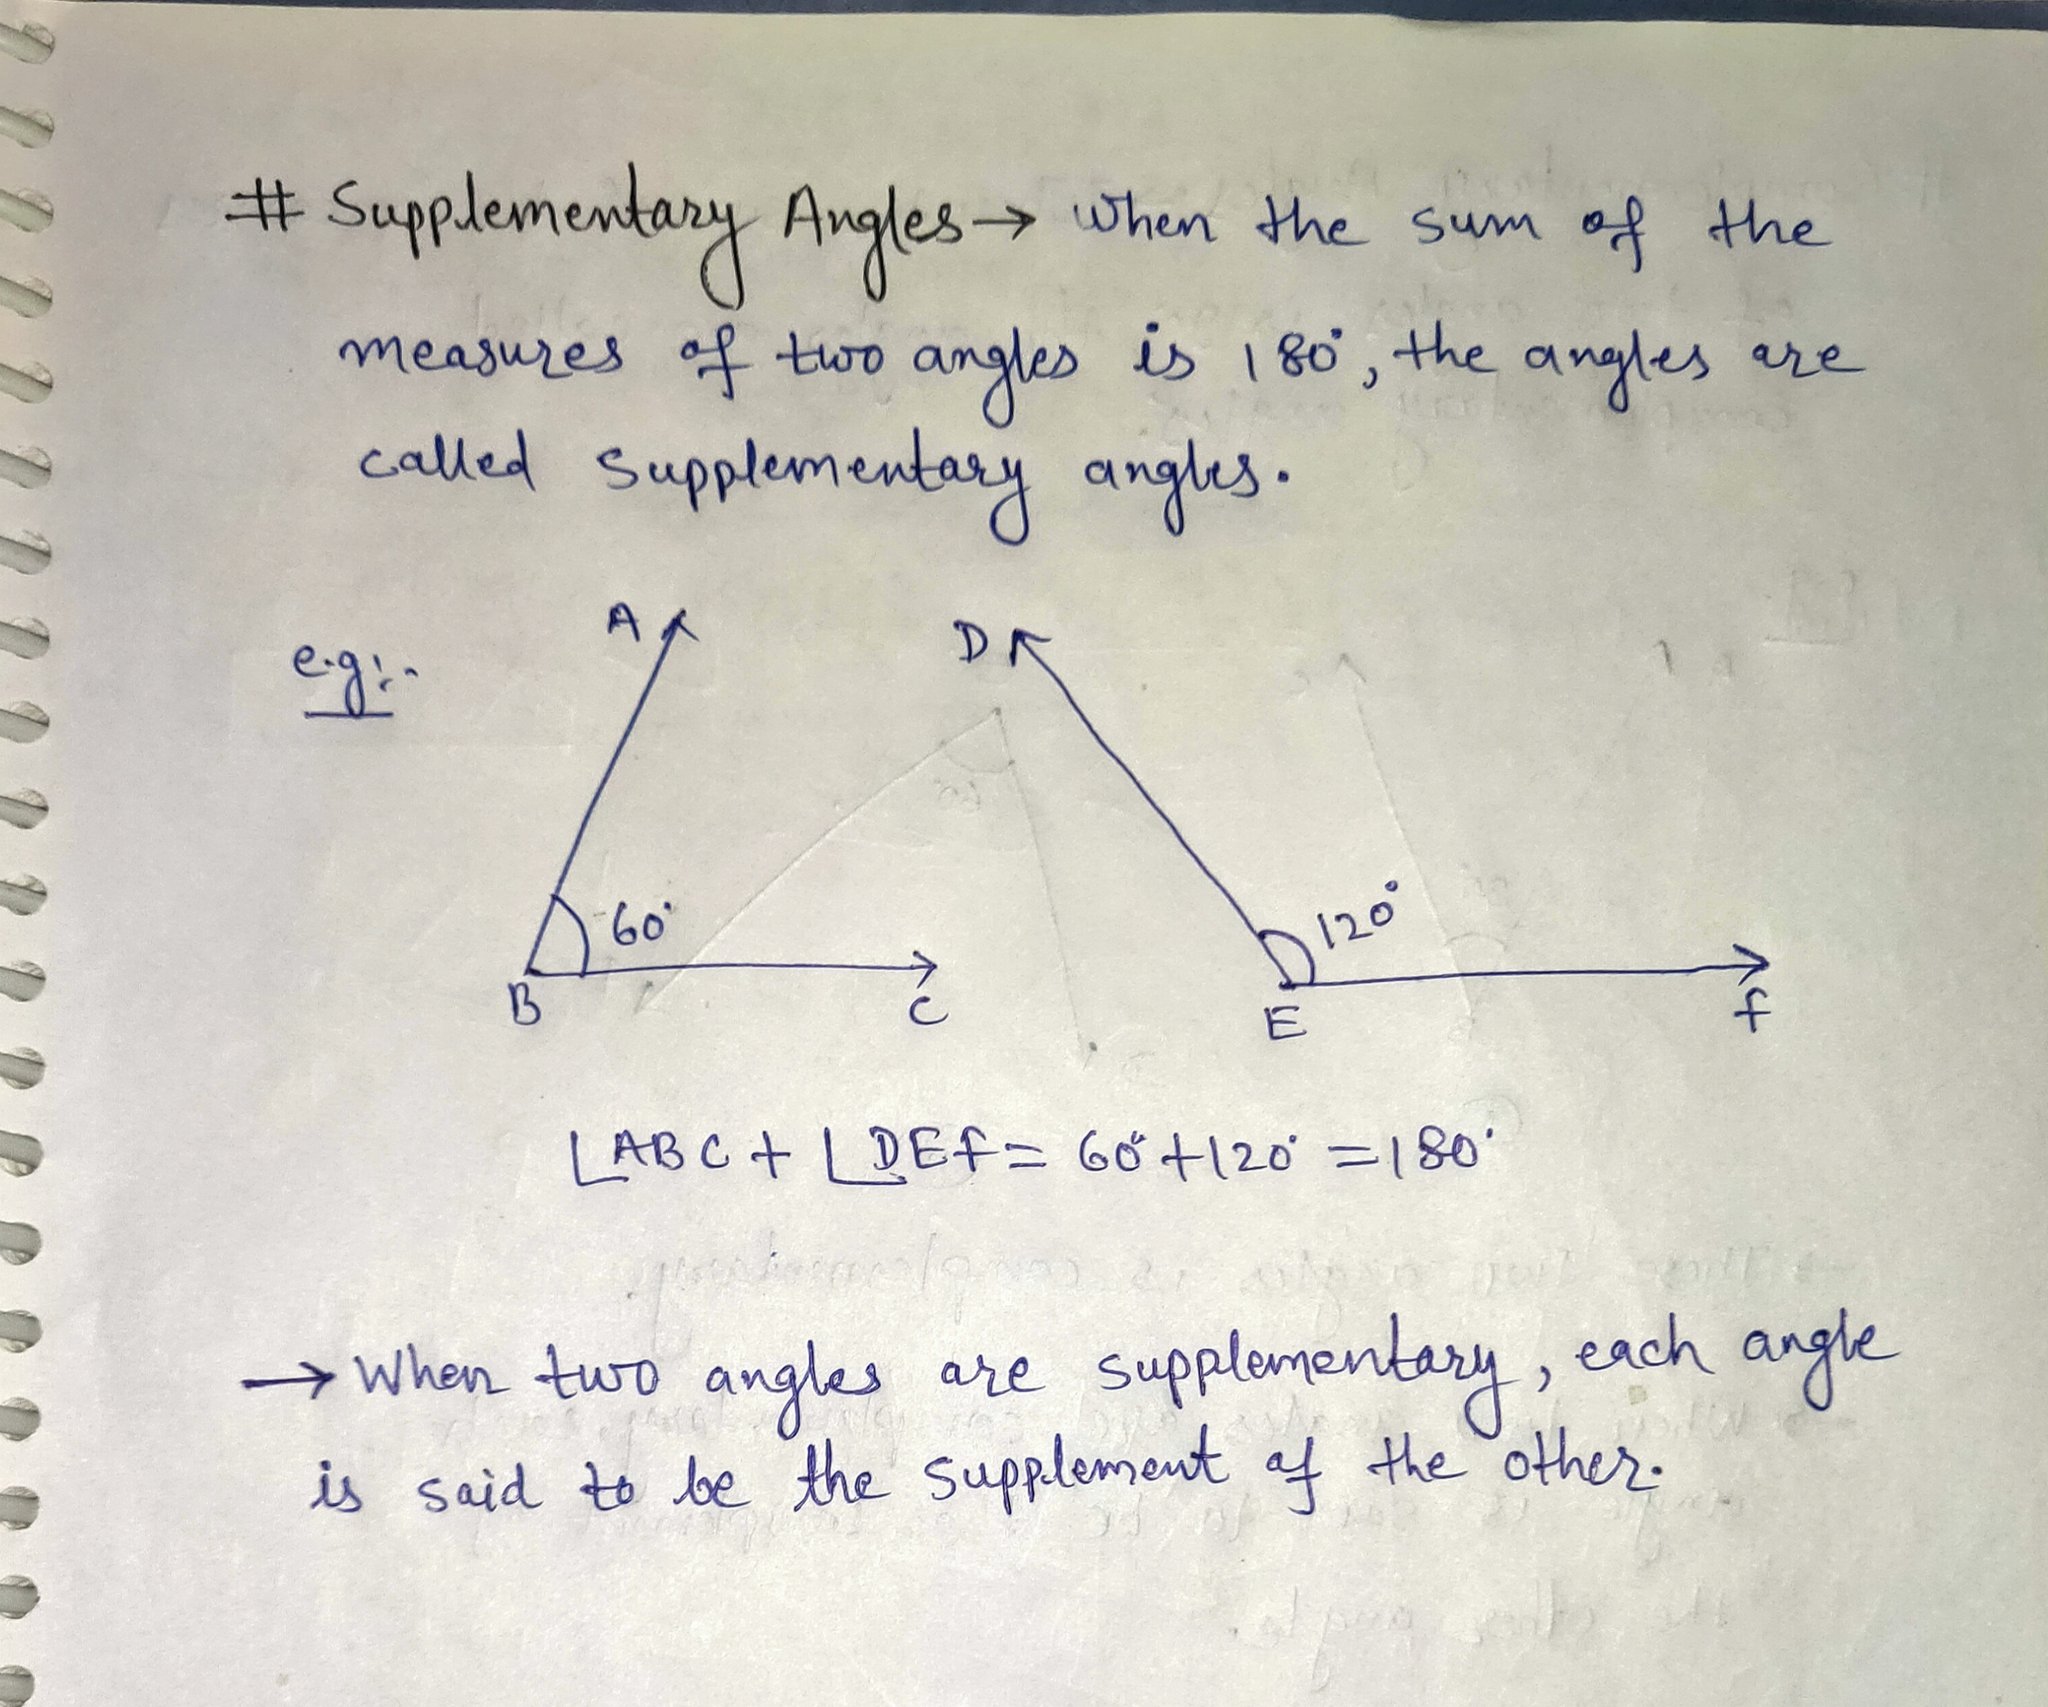 # Supplementary Angles → When the sum of the
measures of two angles is 180°, the angles are
called supplementary angles.
e.g:-
A
D
60°
120°
B
C
E
F
∠ABC + ∠DEF = 60° + 120° = 180°
→ When two angles are supplementary, each angle
is said to be the supplement of the other.